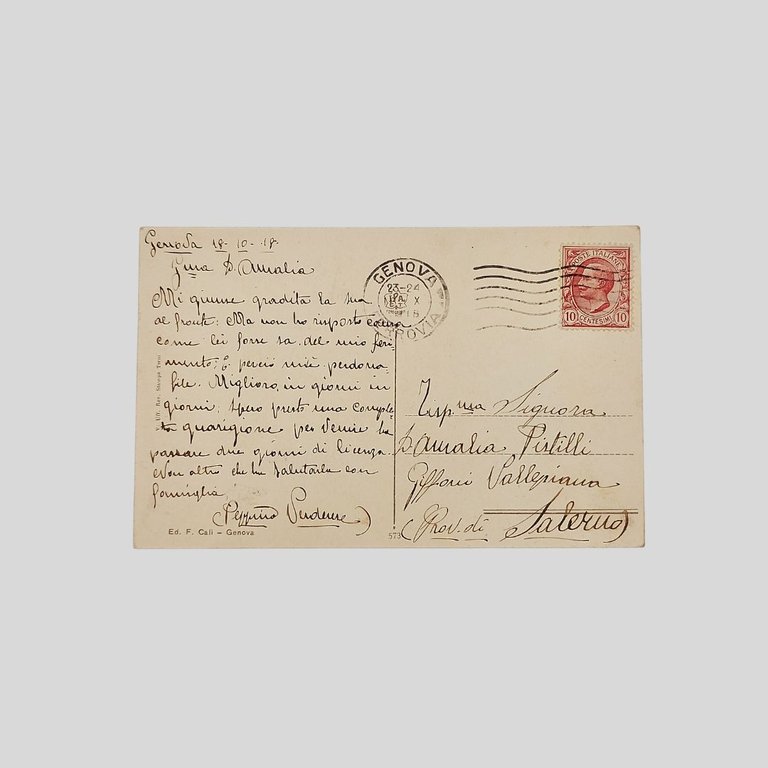 Genova 18-10-18
D. Amalia
Mi giunse gradita la sua
al fronte: Ma non ho risposto causa
come lei forse sa del mio feri-
mento; E perciò mi
Miglioro, in giorni in
giorni: spero presto una comple-
ta guarigione per venire
passare due giorni di licenza.
Non altro che salutarla con
famiglia
(Peppino
Ed. F. Cali – Genova
GENOVA
23-24
X
18
FERROVIA
POSTE ITALIANE
10 CENTESIMI 10
573
Signora
D. Amalia Pistilli
Giffoni Vallepiana
(Prov. di Salerno)